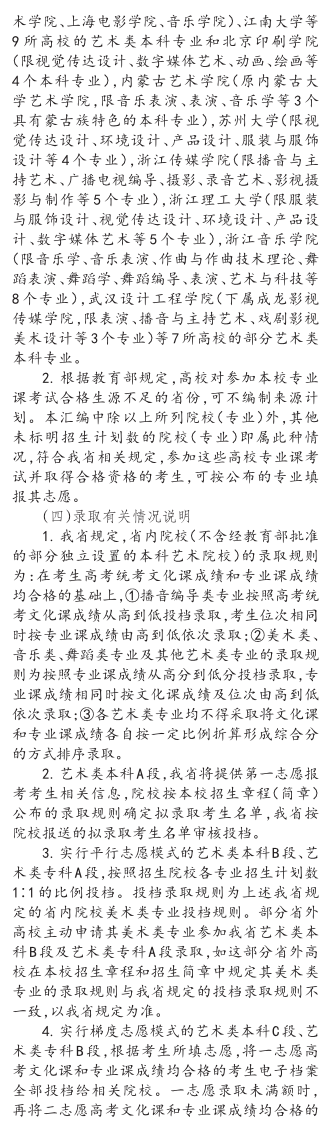 术学院、上海电影学院、音乐学院)、江南大学等
9所高校的艺术类本科专业和北京印刷学院
(限视觉传达设计、数字媒体艺术、动画、绘画等
4个本科专业),内蒙古艺术学院(原内蒙古大
学艺术学院,限音乐表演、表演、音乐学等3个
具有蒙古族特色的本科专业),苏州大学(限视
觉传达设计、环境设计、产品设计、服装与服饰
设计等4个专业),浙江传媒学院(限播音与主
持艺术、广播电视编导、摄影、录音艺术、影视摄
影与制作等5个专业),浙江理工大学(限服装
与服饰设计、视觉传达设计、环境设计、产品设
计、数字媒体艺术等5个专业),浙江音乐学院
(限音乐学、音乐表演、作曲与作曲技术理论、舞
蹈表演、舞蹈学、舞蹈编导、表演、艺术与科技等
8个专业),武汉设计工程学院(下属成龙影视
传媒学院,限表演、播音与主持艺术、戏剧影视
美术设计等3个专业)等7所高校的部分艺术类
本科专业。
2. 根据教育部规定,高校对参加本校专业
课考试合格生源不足的省份,可不编制来源计
划。本汇编中除以上所列院校(专业)外,其他
未标明招生计划数的院校(专业)即属此种情
况,符合我省相关规定,参加这些高校专业课考
试并取得合格资格的考生,可按公布的专业填
报其志愿。
(四)录取有关情况说明
1. 我省规定,省内院校(不含经教育部批准
的部分独立设置的本科艺术院校)的录取规则
为:在考生高考统考文化课成绩和专业课成绩
均合格的基础上,①播音编导类专业按照高考统
考文化课成绩从高到低投档录取,考生位次相同
时按专业课成绩由高到低依次录取;②美术类、
音乐类、舞蹈类专业及其他艺术类专业的录取规
则为按照专业课成绩从高分到低分投档录取,专
业课成绩相同时按文化课成绩及位次由高到低
依次录取;③各艺术类专业均不得采取将文化课
和专业课成绩各自按一定比例折算形成综合分
的方式排序录取。
2. 艺术类本科A段,我省将提供第一志愿报
考考生相关信息,院校按本校招生章程(简章)
公布的录取规则确定拟录取考生名单,我省按
院校报送的拟录取考生名单审核投档。
3. 实行平行志愿模式的艺术类本科B段、艺
术类专科A段,按照招生院校各专业招生计划数
1∶1的比例投档。投档录取规则为上述我省规
定的省内院校美术类专业投档规则。部分省外
高校主动申请其美术类专业参加我省艺术类本
科B段及艺术类专科A段录取,如这部分省外高
校在本校招生章程和招生简章中规定其美术类
专业的录取规则与我省规定的投档录取规则不
一致,以我省规定为准。
4. 实行梯度志愿模式的艺术类本科C段、艺
术类专科B段,根据考生所填志愿,将一志愿高
考文化课和专业课成绩均合格的考生电子档案
全部投档给相关院校。一志愿录取未满额时,
再将二志愿高考文化课和专业课成绩均合格的